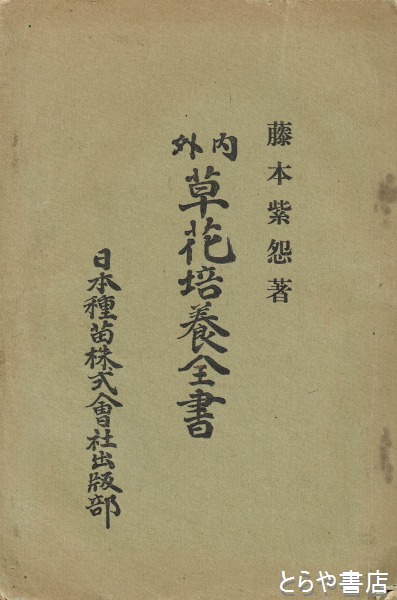 藤本紫怨著
内外
草花培養全書
日本種苗株式會社出版部
とらや書店